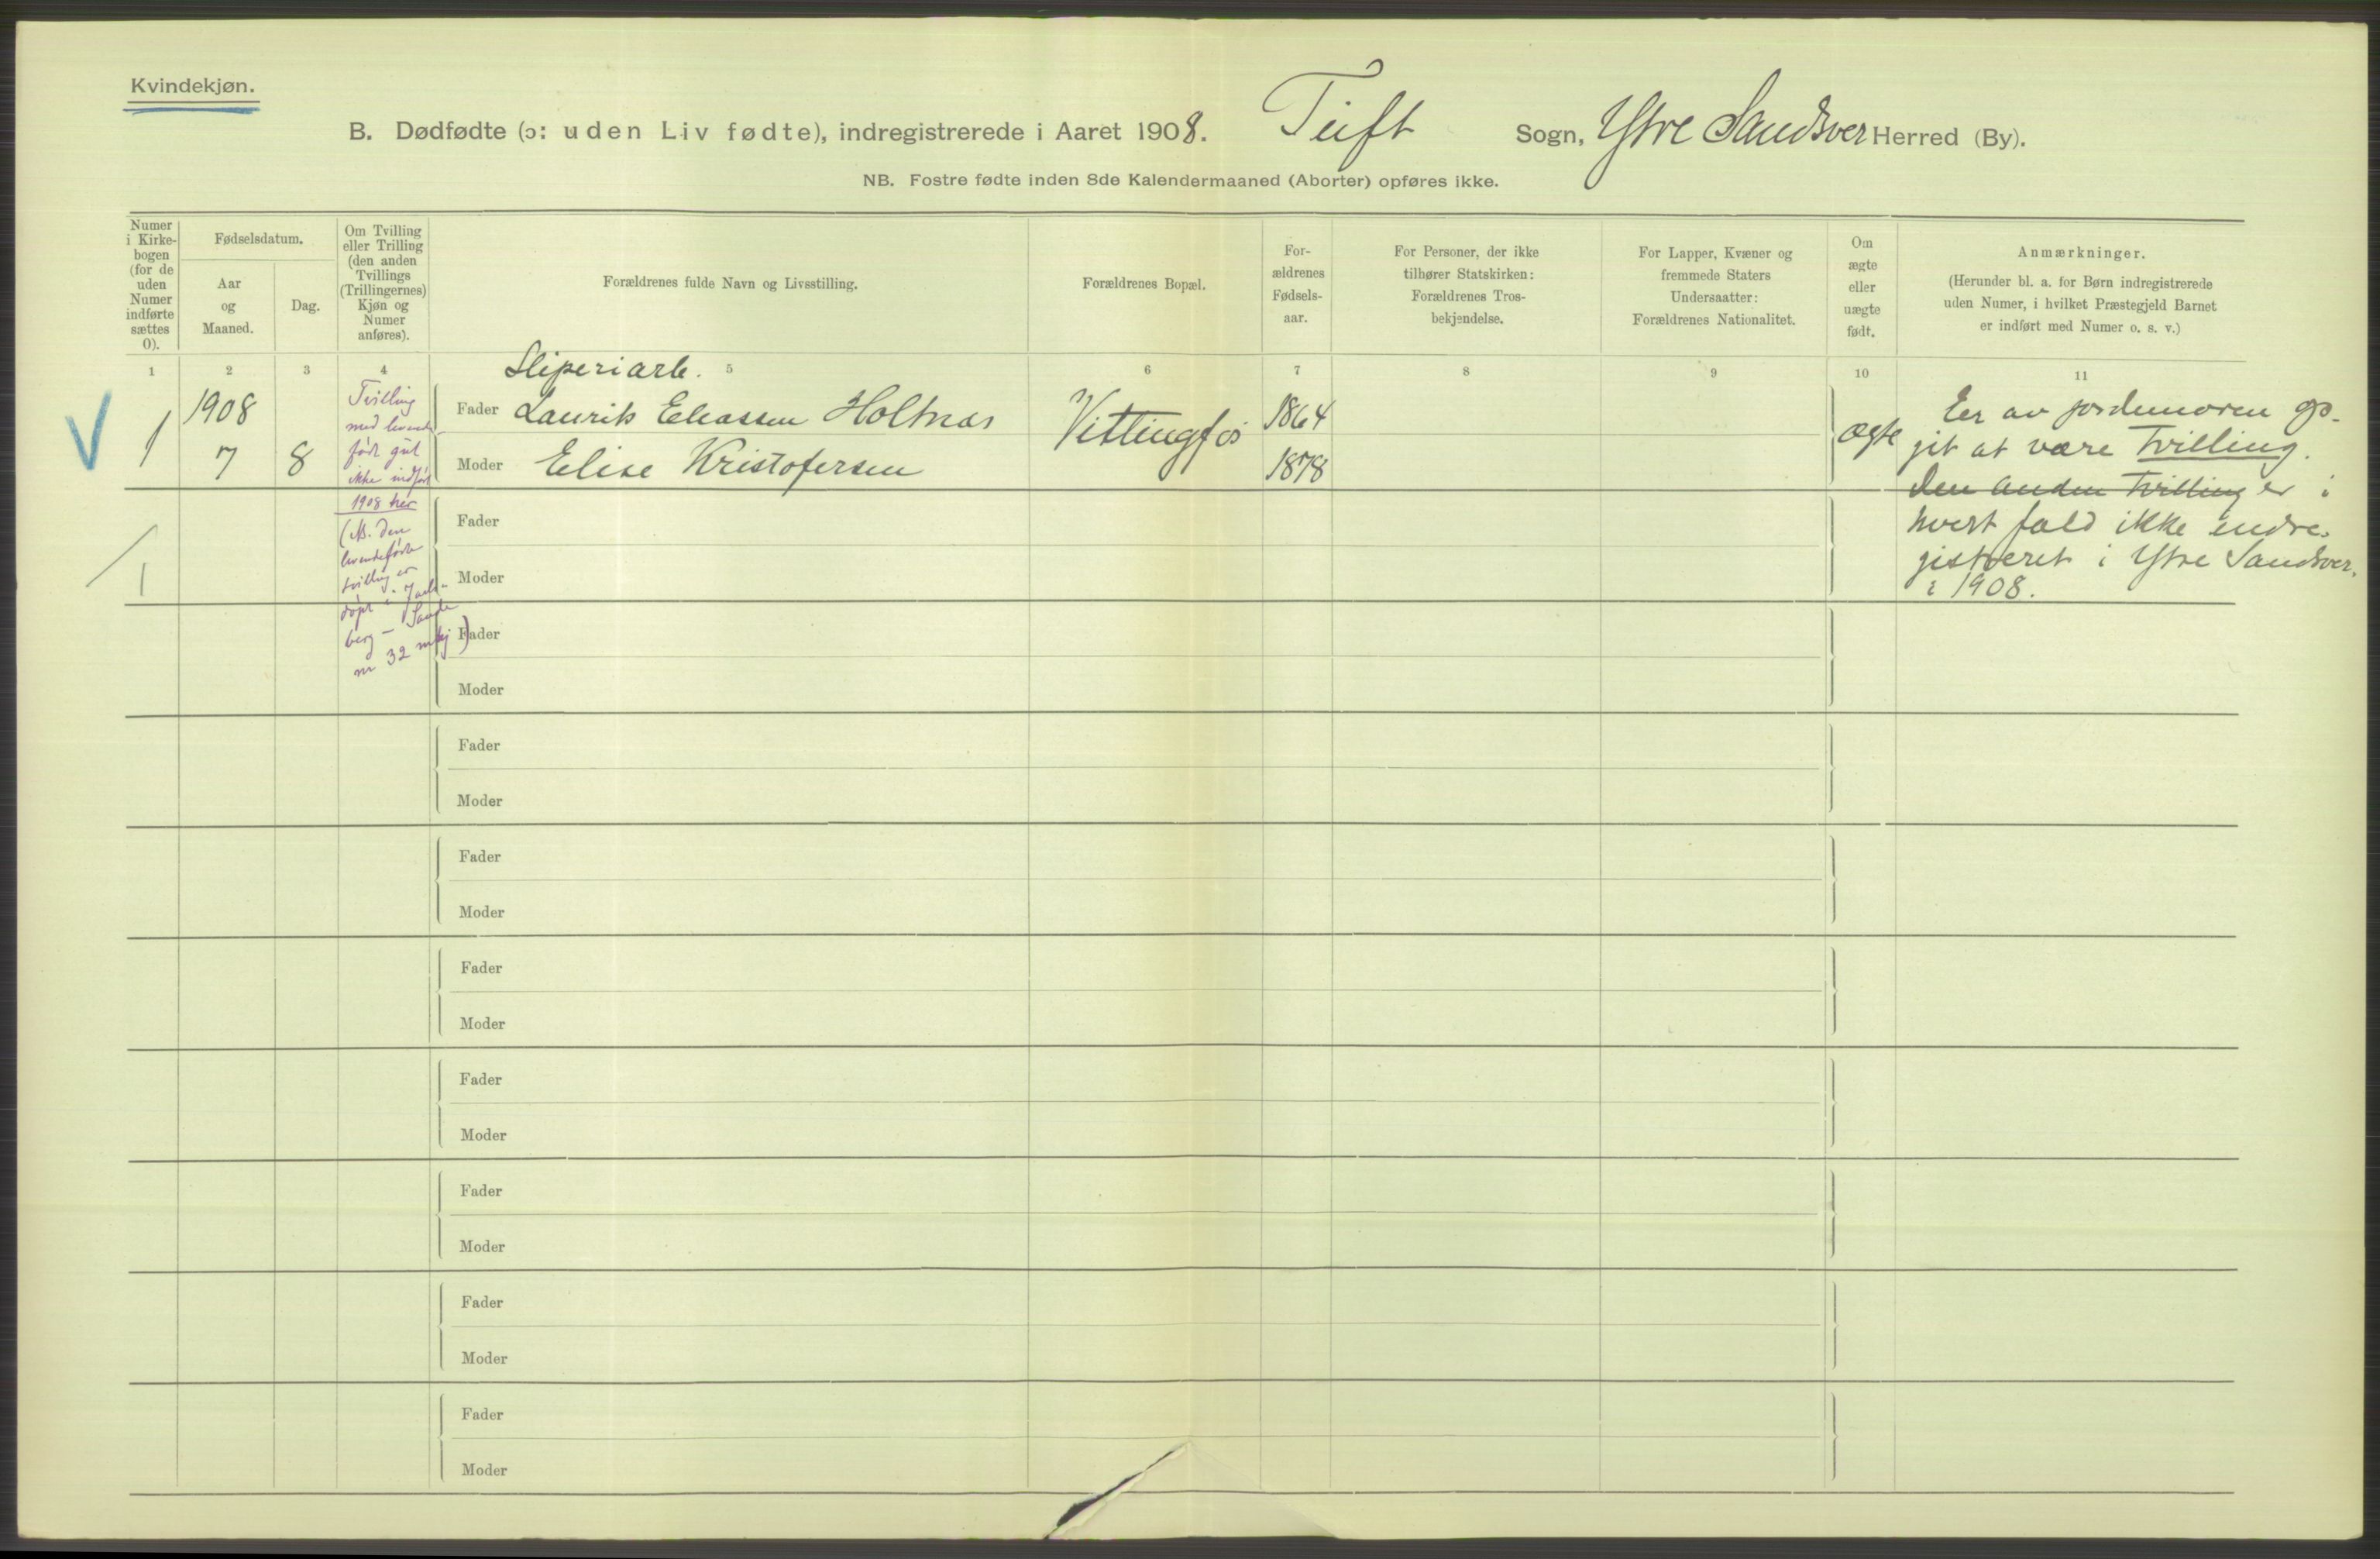 Kvindekjøn.
B. Dødfødte (ɔ: uden Liv fødte), indregistrerede i Aaret 1908. Tuft Sogn, Ytre Sandsver Herred (By).
NB. Fostre fødte inden 8de Kalendermaaned (Aborter) opføres ikke.
Numer i Kirke-bogen (for de uden Numer indførte sættes 0).
Fødselsdatum.
Aar og Maaned.
Dag.
Om Tvilling eller Trilling (den anden Tvillings (Trillingernes) Kjøn og Numer anføres).
Forældrenes fulde Navn og Livsstilling.
Forældrenes Bopæl.
For-ældrenes Fødsels-aar.
For Personer, der ikke tilhører Statskirken: Forældrenes Tros-bekjendelse.
For Lapper, Kvæner og fremmede Staters Undersaatter: Forældrenes Nationalitet.
Om ægte eller uægte født.
Anmærkninger.
(Herunder bl. a. for Børn indregistrerede uden Numer, i hvilket Præstegjeld Barnet er indført med Numer o. s. v.)
1 2 3 4 5 6 7 8 9 10 11
V
1
1908
7 8
Tvilling
med levende
født gut
ikke indført
1908 her
(NB. Den
levendefødte
tvilling er
døpt i Jarls-
berg - Sande
nr 32 mkj)
Sliperiarb.
Fader Laurits Eliassen Holtnæs
Moder Elise Kristofersen
Vittingfos
1864
1878
ægte
Er av jordmoren op-
git at være Tvilling.
Den anden Tvilling er i
hvert fald ikke indre-
gistreret i Ytre Sandsver
i 1908.
1
Fader
Moder
Fader
Moder
Fader
Moder
Fader
Moder
Fader
Moder
Fader
Moder
Fader
Moder
Fader
Moder
Fader
Moder